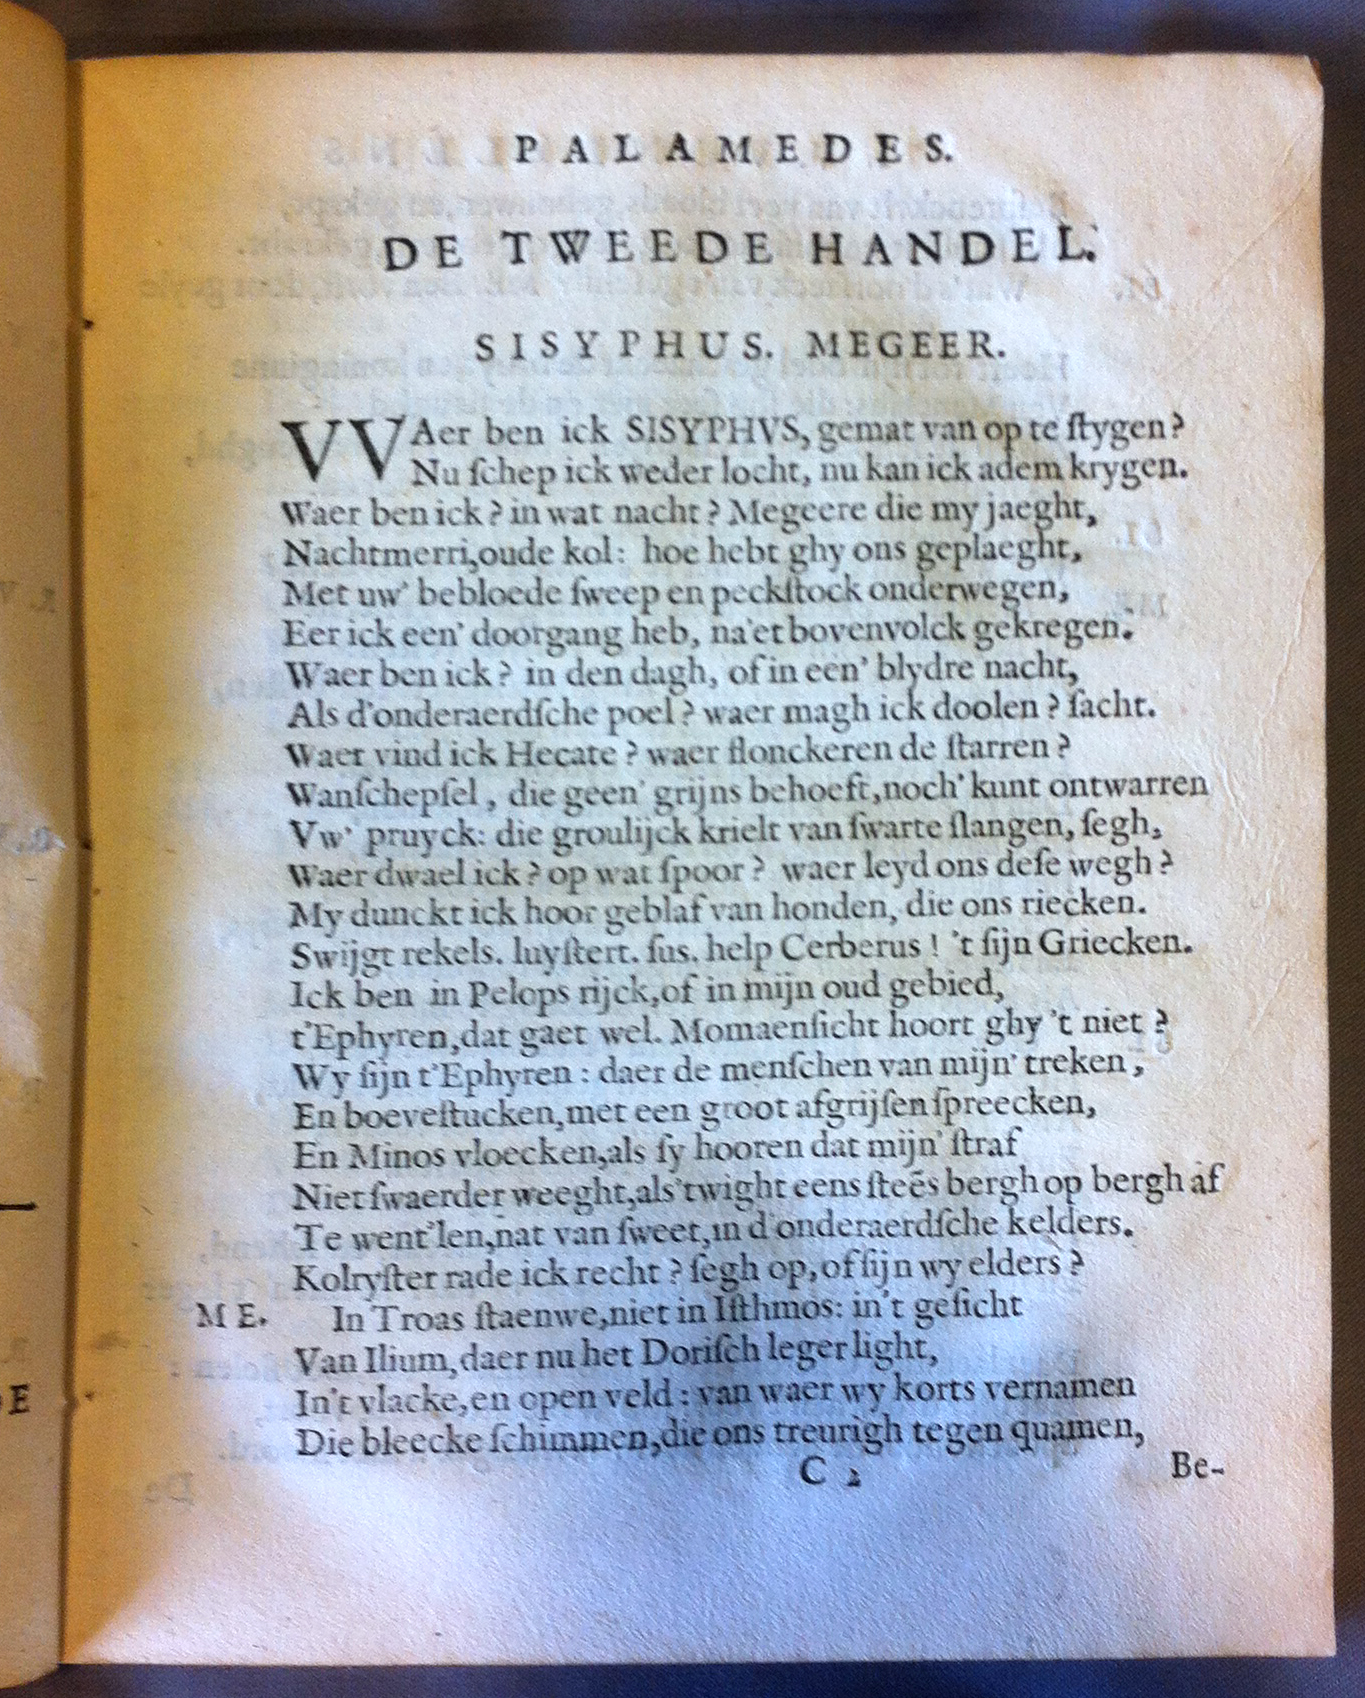 PALAMEDES.
DE TWEEDE HANDEL.
SISYPHUS. MEGEER.
VVAer ben ick SISYPHVS, gemat van op te ſtygen?
Nu ſchep ick weder locht, nu kan ick adem krygen.
Waer ben ick? in wat nacht? Megeere die my jaeght,
Nachtmerri, oude kol: hoe hebt ghy ons geplaeght,
Met uw' bebloede ſweep en peckſtock onderwegen,
Eer ick een' doorgang heb, na'et bovenvolck gekregen.
Waer ben ick? in den dagh, of in een' blydre nacht,
Als d'onderaerdſche poel? waer magh ick doolen? ſacht.
Waer vind ick Hecate? waer flonckeren de ſtarren?
Wanſchepſel, die geen' grijns behoeft, noch' kunt ontwarren
Vw' pruyck: die groulijck krielt van ſwarte ſlangen, ſegh,
Waer dwael ick? op wat ſpoor? waer leyd ons deſe wegh?
My dunckt ick hoor geblaf van honden, die ons riecken.
Swijgt rekels. luyſtert. ſus. help Cerberus! 't ſijn Griecken.
Ick ben in Pelops rijck, of in mijn oud gebied,
t'Ephyren, dat gaet wel. Momaenſicht hoort ghy 't niet?
Wy ſijn t'Ephyren: daer de menſchen van mijn' treken,
En boeveſtucken, met een groot afgrijſen ſpreecken,
En Minos vloecken, als ſy hooren dat mijn' ſtraf
Niet ſwaerder weeght, als 'twight eens ſteēs bergh op bergh af
Te went'len, nat van ſweet, in d'onderaerdſche kelders.
Kolryſter rade ick recht? ſegh op, of ſijn wy elders?
ME. In Troas ſtaen we, niet in Iſthmos: in't geſicht
Van Ilium, daer nu het Doriſch leger light,
In't vlacke, en open veld: van waer wy korts vernamen
Die bleecke ſchimmen, die ons treurigh tegen quamen,
C 2 Be-